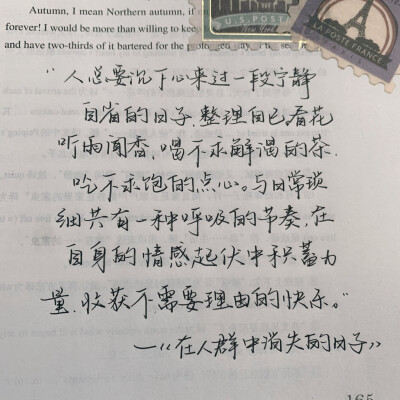 Autumn, I mean Northern autumn, if
forever! I would be more than willing to kee
and have two-thirds of it bartered for the prolonged
U.S. POST
LA POSTE FRANCE
"人总要沉下心来过一段宁静
自省的日子,整理自己,看花
听雨闻香,喝不求解渴的茶,
吃不求饱的点心。与日常琐
细共有一种呼吸的节奏,在
自身的情感起伏中积蓄力
量,收获不需要理由的快乐。"
—《在人群中消失的日子》
165